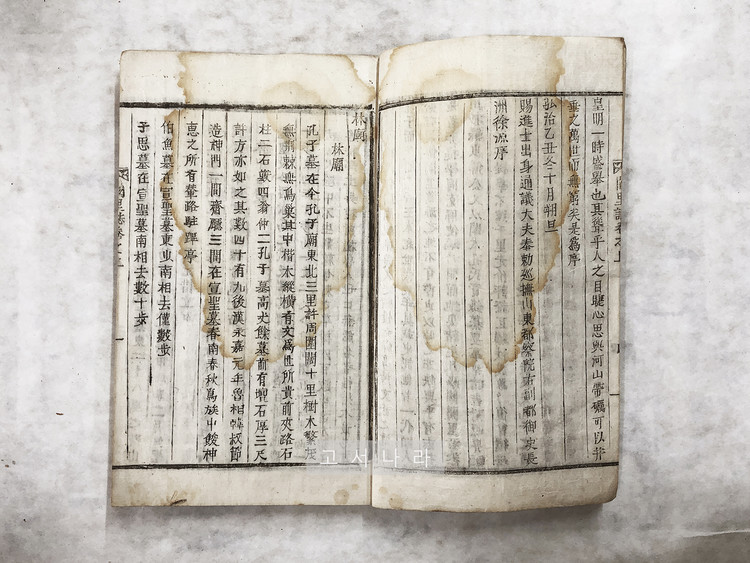 皇明一時盛擧也具聳乎人之目聽心思與河山帶礪可以並
垂之萬世而無窮夫是爲序
弘治乙丑冬十月朔旦
賜進士出身通議大夫奉勅巡撫山東都察院右副都御史長
洲徐源序
林廟
林廟
孔子墓在今孔子廟東北三里許周圍闊十里樹木繁茂
無荆棘無鳥巢其中楷木縱橫有文爲世所貴前夾路石
柱二石獸四翁仲二孔子墓高丈餘墓前有壇石厚三尺
許方亦如之其數四十有九後漢永嘉元年魯相韓叔節
造神門一間齋廳三間在宣聖墓春南春秋爲族中餕神
惠之所有輦路駐蹕亭
伯魚墓在宣聖墓東南相去僅數步
子思墓在宣聖墓南相去數十步
闕里誌卷之上
고서나라